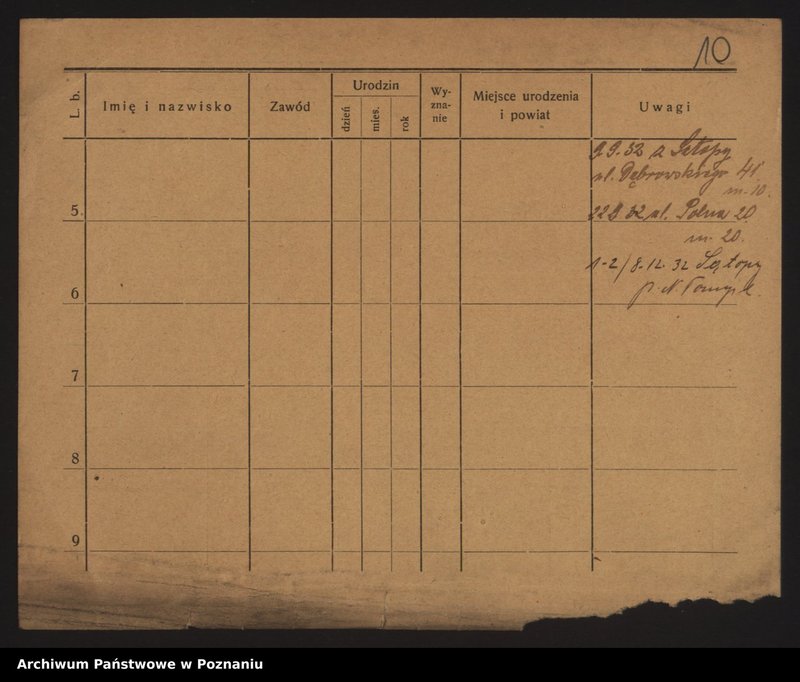 10
L. b.
Imię i nazwisko
Zawód
Urodzin
dzień
mies.
rok
Wy-
zna-
nie
Miejsce urodzenia
i powiat
Uwagi
9.9.32 z
ul. Dąbrowskiego 41
m. 10.
5.
22 32 ul. Polna 20
m. 20.
1-2/8.12.32 Sątopy
6
p. N Tomyśl.
7
8
9
Archiwum Państwowe w Poznaniu